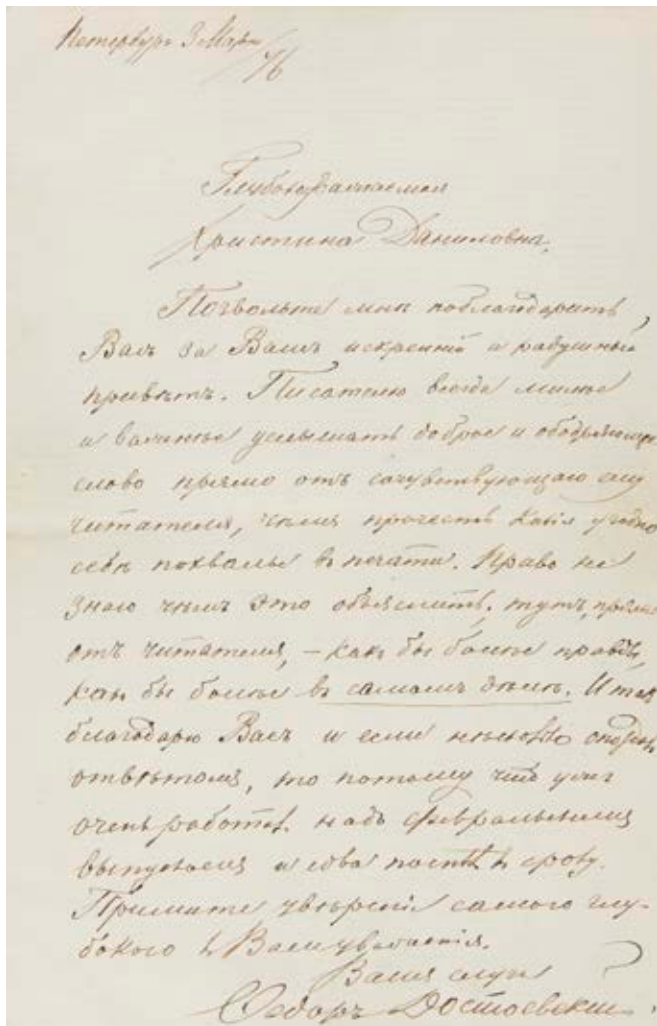 Петербургъ 3 Марта
/76
Глубокоуважаемая
Христина Даниловна,
Позвольте мнѣ поблагодарить
Васъ за Вашъ искренній и радушный
привѣтъ. Писателю всегда милѣе
и важнѣе услышать доброе и ободряющее
слово прямо отъ сочувствующаго ему
читателя, чѣмъ прочесть какія угодно
себѣ похвалы въ печати. Право не
знаю чѣмъ это объяснить: тутъ, прямо
отъ читателя, – какъ бы болѣе правды,
какъ бы болѣе въ самомъ дѣлѣ. Итакъ
благодарю Васъ и если нѣсколько опоздалъ
отвѣтомъ, то потому что
очень работалъ надъ февральскимъ
выпускомъ и едва поспѣлъ къ сроку.
Примите увѣреніе самого глу-
бокого къ Вамъ уваженія.
Вашъ слуга
Федоръ Достоевскій.